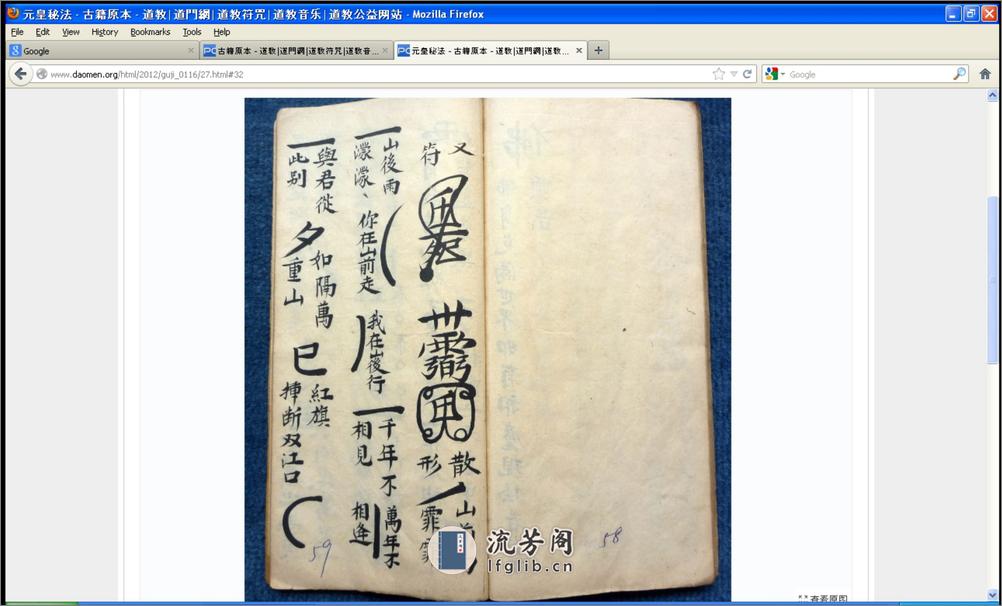 元皇秘法 - 古籍原本 - 道教|道門網|道教符咒|道教音乐|道教公益网站 - Mozilla Firefox
File Edit View History Bookmarks Tools Help
Google
古籍原本 - 道教|道門網|道教符咒|道教音...
元皇秘法 - 古籍原本 - 道教|道門網|道教...
www.daomen.org/html/2012/guji_0116/27.html#32
Google
又
符
散
形
山
霏
山後雨
濛濛、
你在山前走
我在山後行
千年不
相見
萬年不
相逢
與君從
此别
如隔萬
重山
紅旗
挿断双江口
59
58
流芳阁
lfglib.cn
查看原图